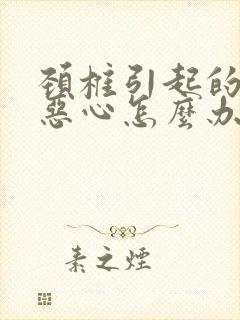 頚椎引起的
惡心怎麼办
素之煙